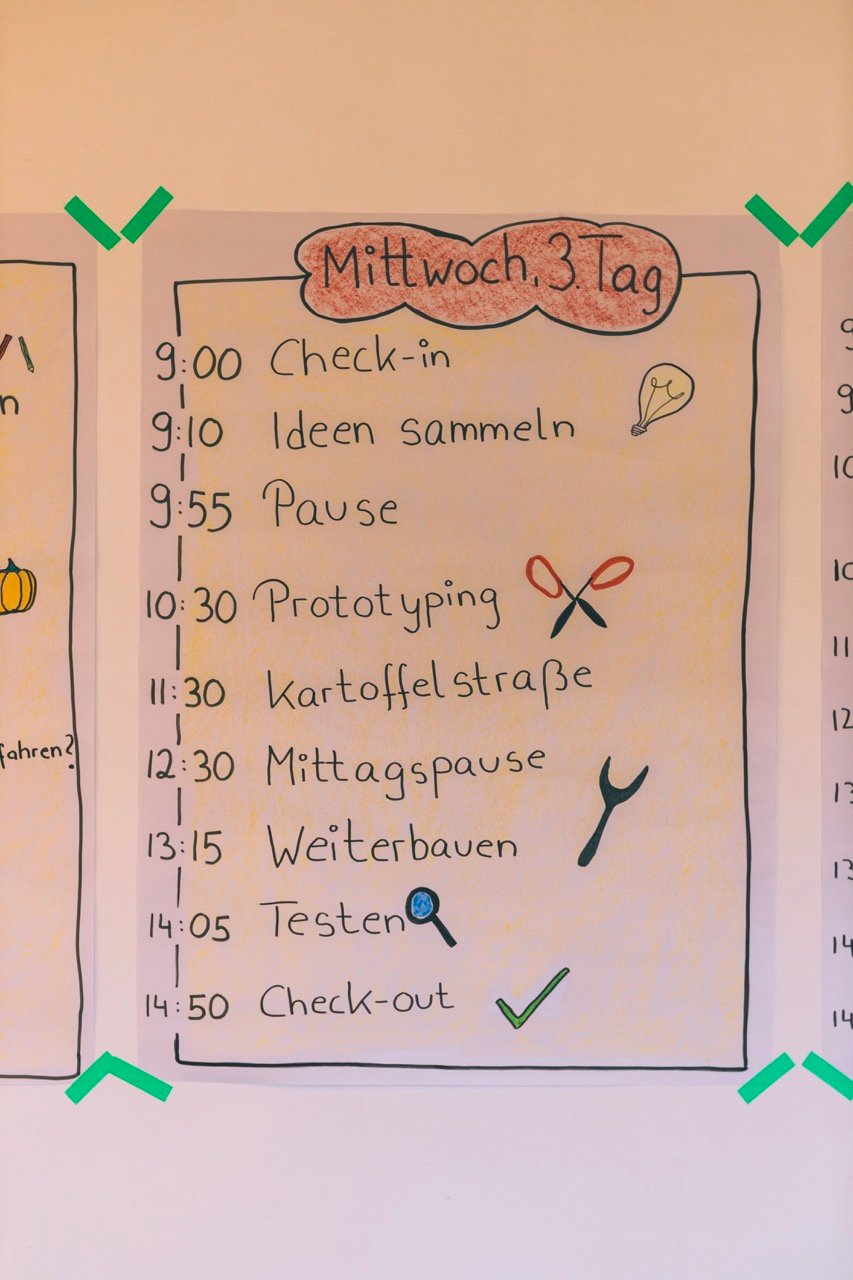 Mittwoch, 3. Tag
9:00 Check-in
9:10 Ideen sammeln
9:55 Pause
10:30 Prototyping
11:30 Kartoffelstraße
12:30 Mittagspause
13:15 Weiterbauen
14:05 Testen
14:50 Check-out
fahren?